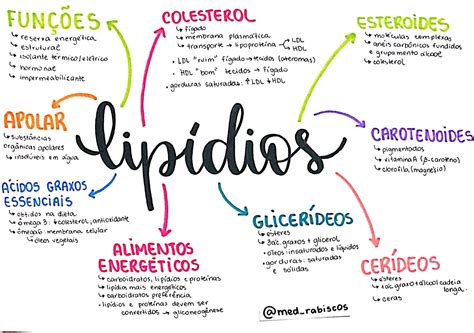 FUNÇÕES
↳ reserva energética
↳ estrutural
↳ isolante térmico/elétrico
↳ hormonal
↳ impermeabilizante
COLESTEROL
↳ fígado
↳ membrana plasmática
↳ transporte → lipoproteína
LDL
HDL
• LDL "ruim" fígado → tecidos (ateromas)
• HDL "bom" tecidos → fígado
• gorduras saturadas: ↑LDL ↓HDL
ESTEROIDES
↳ moléculas complexas
↳ anéis carbônicos fundidos
e grupamento alcool
↳ colesterol
APOLAR
↳ substâncias
orgânicas apolares
↳ insolúveis em água
lipídios
CAROTENOIDES
↳ pigmentados
↳ vitamina A (β-caroteno)
↳ clorofila (magnésio)
ÁCIDOS GRAXOS
ESSENCIAIS
↳ obtidos na dieta
↳ ômega 3: ↓colesterol, antioxidante
↳ ômega 6: membrana celular
óleos vegetais
ALIMENTOS
ENERGÉTICOS
↳ carboidratos, lipídios e proteínas
↳ lipídios mais energéticos
↳ carboidratos preferência
↳ lipídios e proteínas devem ser
convertidos → gliconeogênese
GLICERÍDEOS
↳ ésteres
↳ 3ác. graxos + glicerol
↳ óleos: insaturados e líquidos
↳ gorduras: saturadas
e sólidas
CERÍDEOS
↳ ésteres
↳ ác. graxo + álcool cadeia
longa
↳ ceras
@med_rabiscos